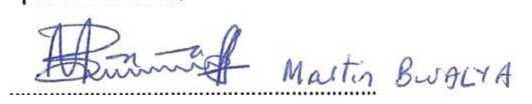 Martin BWALYA